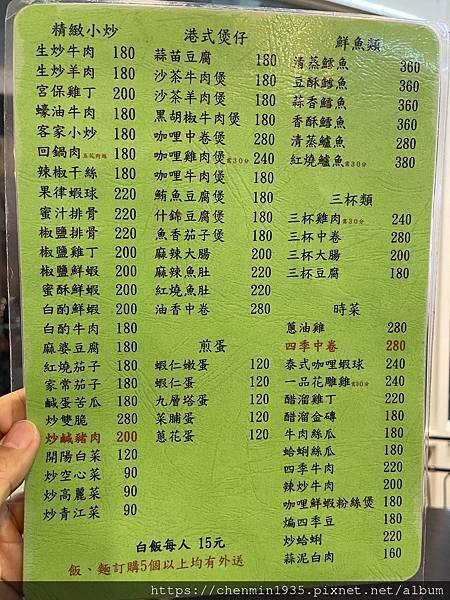 精緻小炒
生炒牛肉 180
生炒羊肉 180
宮保雞丁 200
蠔油牛肉 180
客家小炒 180
回鍋肉 180
辣椒干絲 180
果律蝦球 220
蜜汁排骨 220
椒鹽排骨 220
椒鹽雞丁 200
椒鹽鮮蝦 200
蜜酥鮮蝦 200
白酌鮮蝦 200
白酌牛肉 180
麻婆豆腐 180
紅燒茄子 180
家常茄子 180
鹹蛋苦瓜 180
炒雙脆 280
炒鹹豬肉 200
開陽白菜 120
炒空心菜 90
炒高麗菜 90
炒青江菜 90
港式煲仔
蒜苗豆腐 180
沙茶牛肉煲 180
沙茶羊肉煲 180
黑胡椒牛肉煲 180
咖哩中卷煲 280
咖哩雞肉煲 需30分 240
咖哩牛肉煲 180
鮪魚豆腐煲 180
什錦豆腐煲 180
魚香茄子煲 180
麻辣大腸 200
麻辣魚肚 220
紅燒魚肚 220
油香中卷 280
煎蛋
蝦仁嫩蛋 120
蝦仁蛋 120
九層塔蛋 120
菜脯蛋 120
蔥花蛋 120
鮮魚類
清蒸鱈魚 360
豆酥鱈魚 360
蒜香鱈魚 360
香酥鱈魚 360
清蒸鱸魚 280
紅燒鱸魚 需30分 380
三杯類
三杯雞肉 需30分 240
三杯中卷 280
三杯大腸 200
三杯豆腐 180
時菜
蔥油雞 280
四季中卷 280
泰式咖哩蝦球 240
一品花雕雞 需30分 240
醋溜雞丁 200
醋溜金磚 180
牛肉絲瓜 180
蛤蜊絲瓜 180
四季牛肉 220
辣炒牛肉 200
咖哩鮮蝦粉絲煲 180
煸四季豆 180
炒蛤蜊 220
蒜泥白肉 160
白飯每人 15元
飯、麵訂購5個以上均有外送
https://chenmin1935.pixnet.net/album